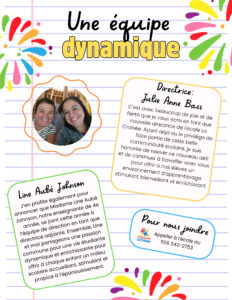 Une équipe
dynamique
Directrice:
Julie Anne Bass
C'est avec beaucoup de joie et de
fierté que je vous écris en tant que
nouvelle directrice de l'école La
Croisée. Ayant déjà eu le privilège de
faire partie de cette belle
communauté scolaire, je suis
honorée de relever ce nouveau défi
et de continuer à travailler avec vous
pour offrir à nos élèves un
environnement d'apprentissage
stimulant, bienveillant et enrichissant.
Line Aubé Johnson
J'en profite également pour
annoncer que Madame Line Aubé
Johnson, notre enseignante de 4e
année, se joint cette année à
l'équipe de direction en tant que
directrice adjointe. Ensemble, Line
et moi partageons une passion
commune pour une vie étudiante
dynamique et enrichissante pour
offrir à chaque enfant un milieu
scolaire accueillant, stimulant et
propice à l'épanouissement.
Pour nous joindre
Appeler à l'école au